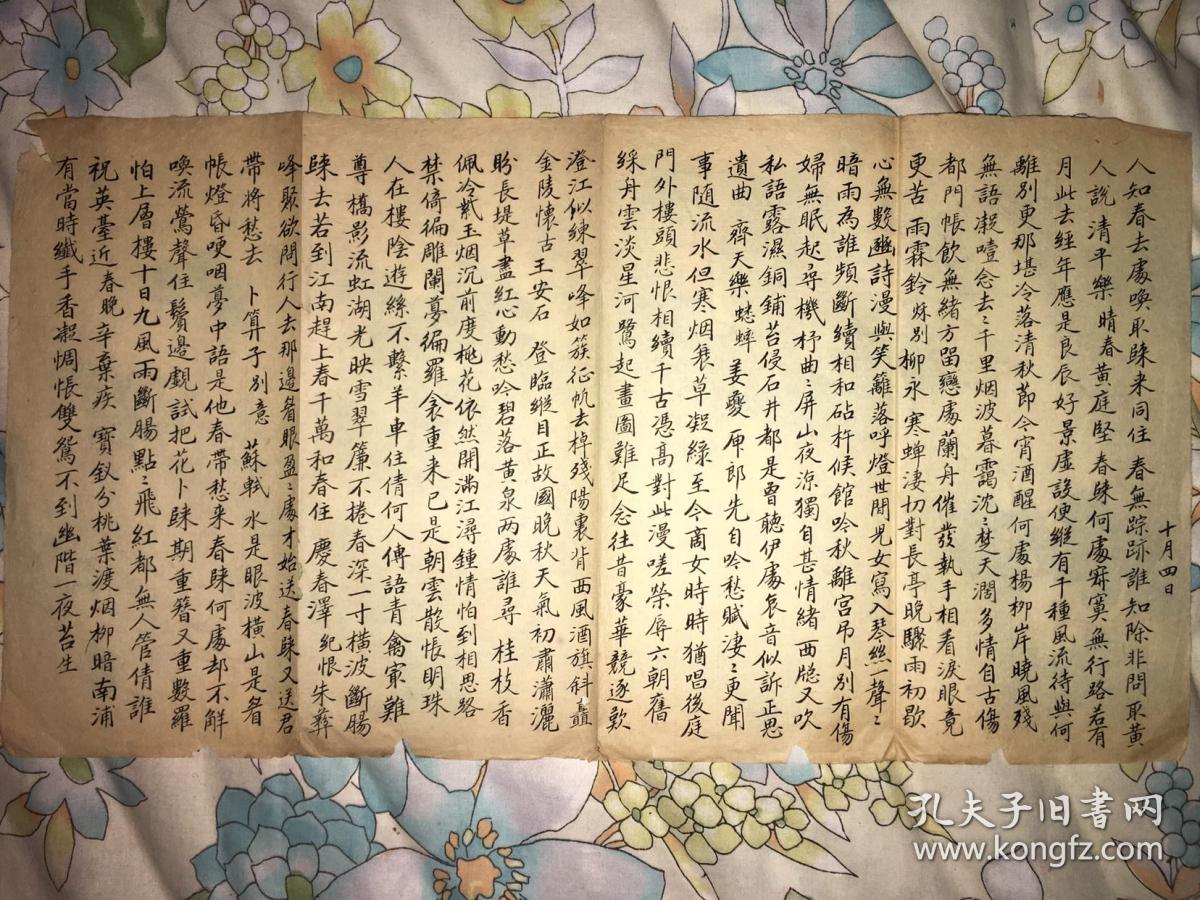 有當時纖手香凝惆悵雙鴛不到幽階一夜苔生
祝英臺近 春晚 辛棄疾 寶釵分桃葉渡烟柳暗南浦
怕上層樓十日九風雨斷腸點々飛紅都無人管倩誰
喚流鶯聲住鬢邊覷試把花卜歸期重簪又重數羅
帳燈昏哽咽夢中語是他春帶愁来春歸何處却不解
帶將愁去 卜算子 別意 蘇軾 水是眼波橫山是眉
峰聚欲問行人去那邊眉眼盈々處才始送春歸又送君
歸去若到江南趕上春千萬和春住 慶春澤 紀恨 朱彝
尊 橋影流虹湖光映雪翠簾不捲春深一寸橫波斷腸
人在樓陰遊絲不繫羊車住倩何人傳語青禽最難
禁倚徧雕闌夢徧羅衾重来已是朝雲散悵明珠
佩冷紫玉烟沉前度桃花依然開滿江潯鍾情怕到相思路
盼長堤草盡紅心動愁吟碧落黄泉兩處誰尋 桂枝香
金陵懷古 王安石 登臨縱目正故國晚秋天氣初肅瀟灑
澄江似練翠峰如簇征帆去棹殘陽裏背西風酒旗斜矗
綵舟雲淡星河鷺起畫圖難足念往昔豪華競逐歎
門外樓頭悲恨相續千古憑高對此漫嗟榮辱六朝舊
事隨流水但寒烟衰草凝綠至今商女時時猶唱後庭
遺曲 齊天樂 蟋蟀 姜夔 庾郎先自吟愁賦淒々更聞
私語露濕銅鋪苔侵石井都是曾聽伊處哀音似訴正思
婦無眠起尋機杼曲々屏山夜涼獨自甚情緒 西牕又吹
暗雨為誰頻斷續相和砧杵候館吟秋離宮吊月別有傷
心無數豳詩漫與笑離落呼燈世間兒女寫入琴絲一聲々
更苦 雨霖鈴 秋別 柳永 寒蟬淒切對長亭晚驟雨初歇
都門帳飲無緒方留戀處蘭舟催發執手相看淚眼竟
無語凝噎念去々千里烟波暮靄沈々楚天闊多情自古傷
離別更那堪冷落清秋節今宵酒醒何處楊柳岸曉風殘
月此去經年應是良辰好景虛設便縱有千種風流待與何
人說 清平樂 晴春 黄庭堅 春歸何處寂寞無行路若有
人知春去處喚取歸来同住 春無踪跡誰知除非問取黄
十月四日
孔夫子旧书网
www.kongfz.com